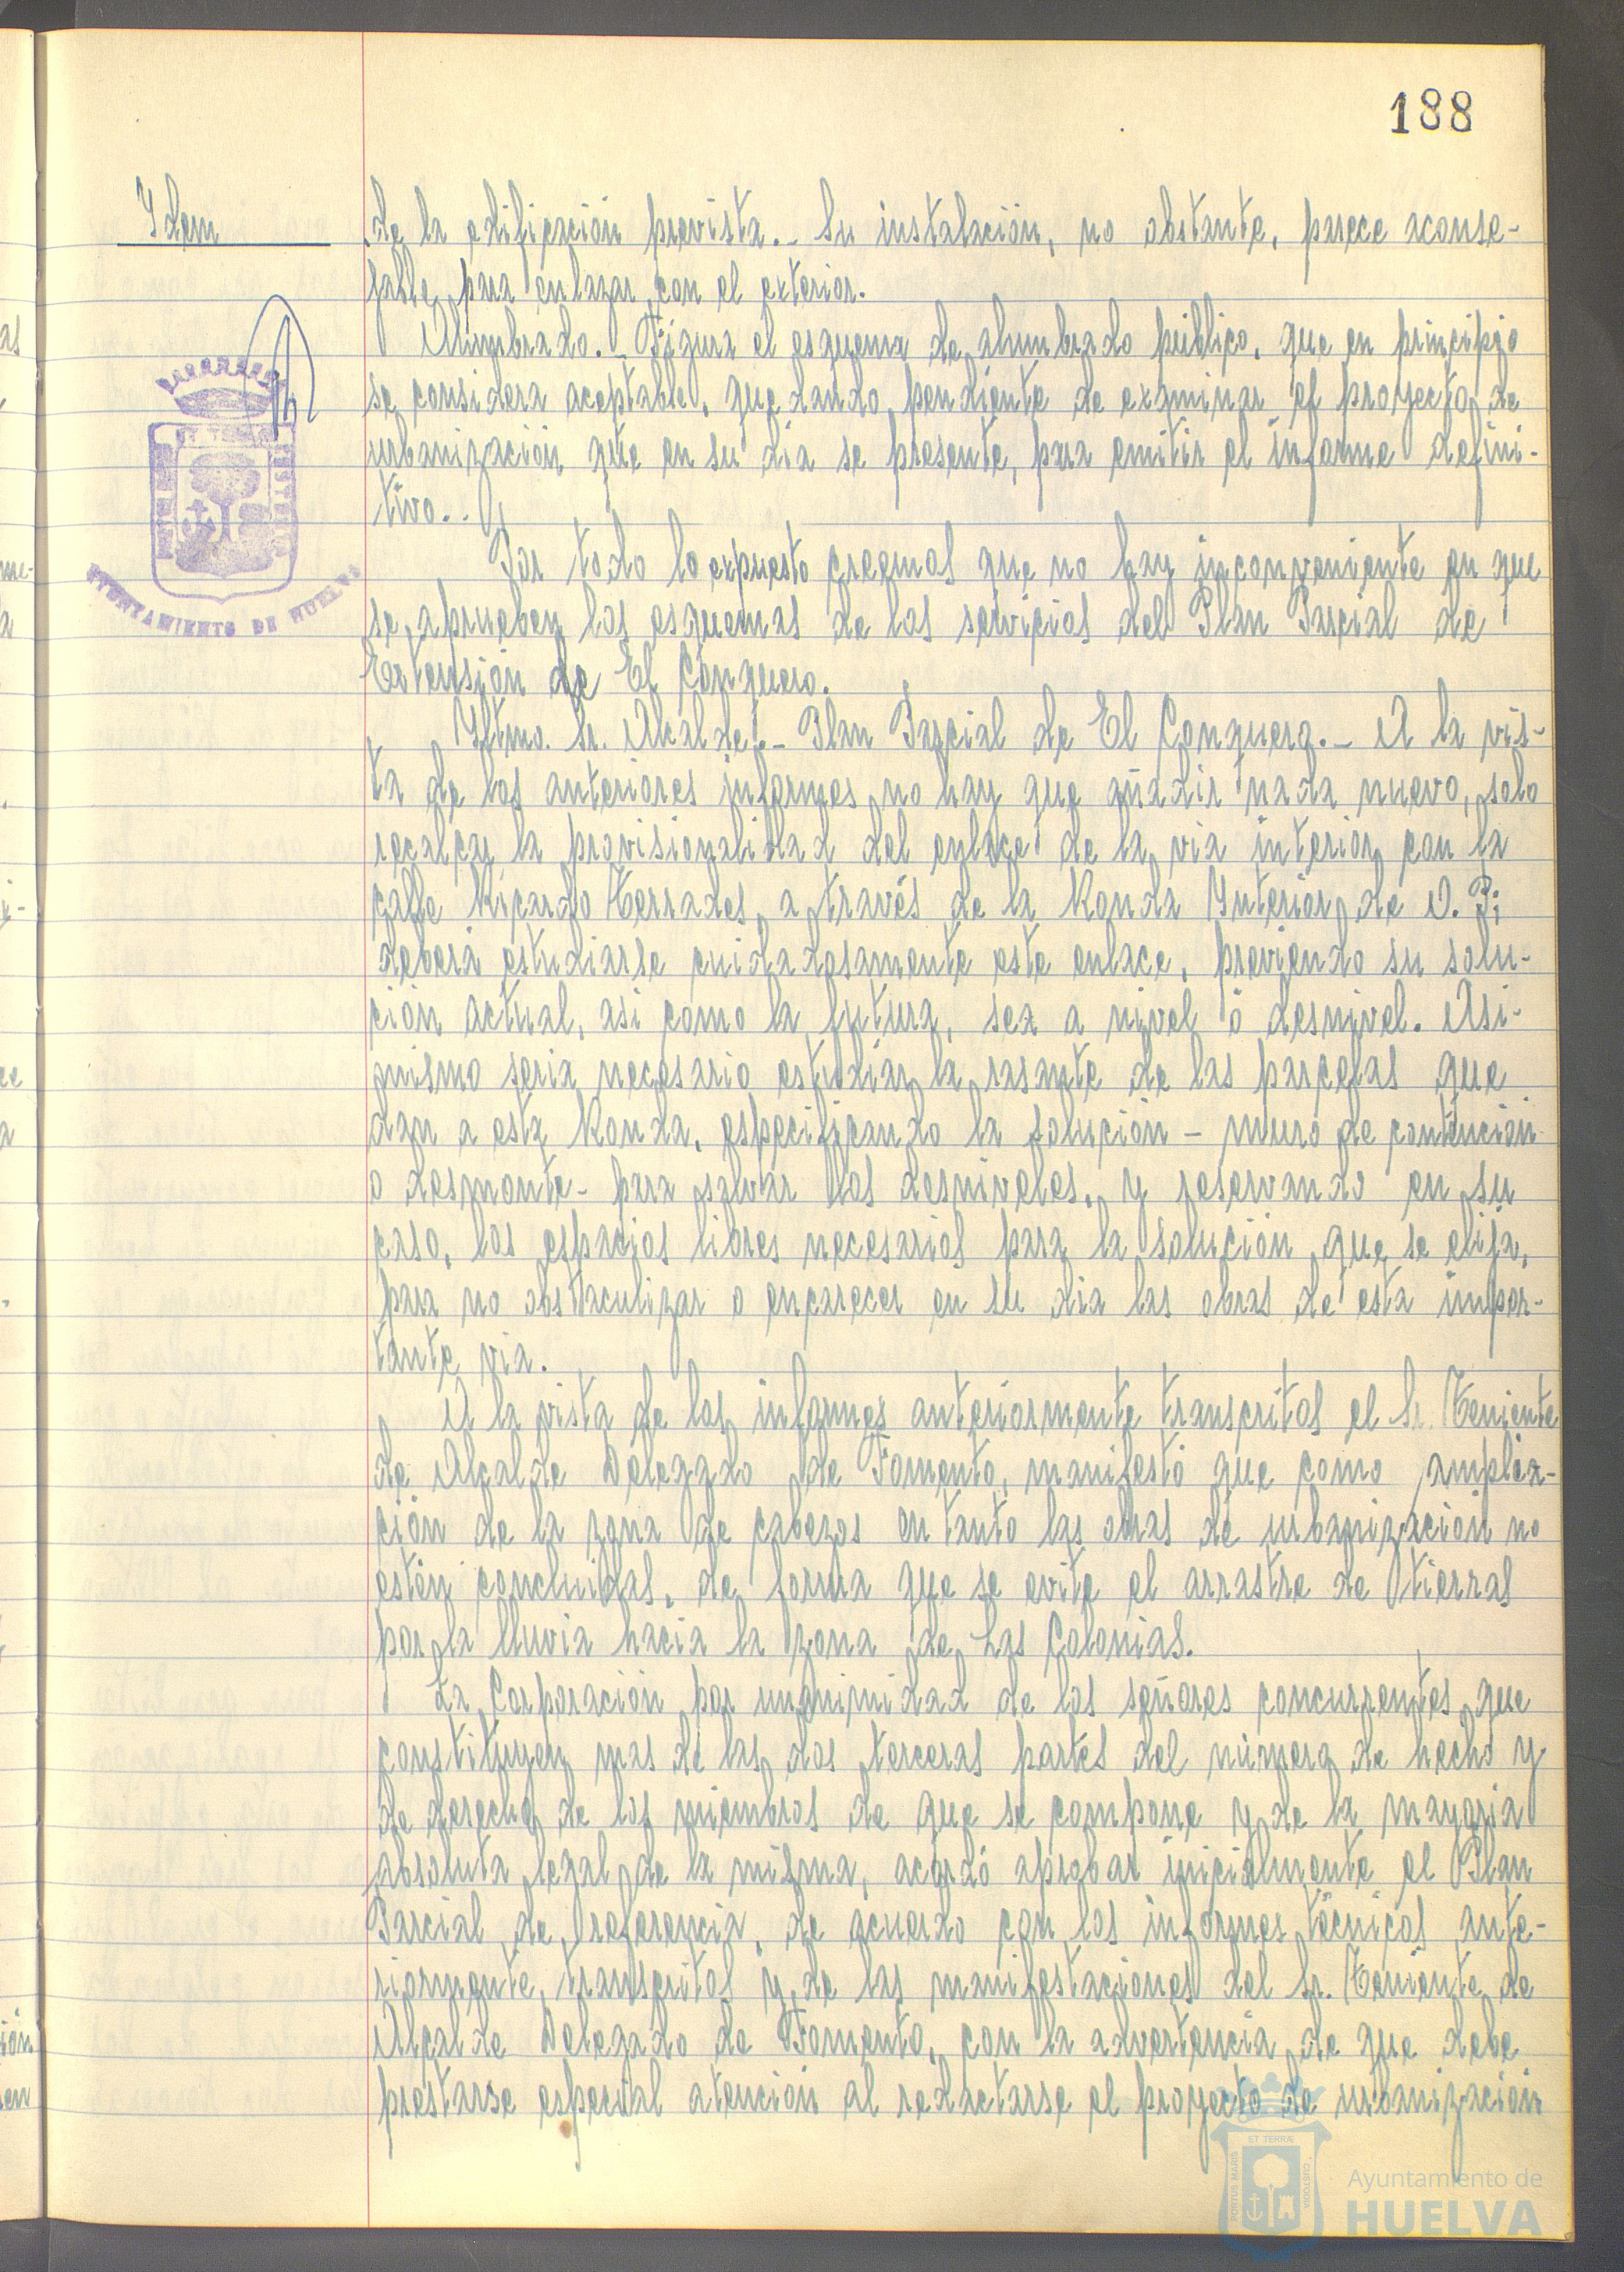 188
Idem
de la edificación prevista.- Su instalación, no obstante, parece aconse-
jable, para enlazar con el exterior.
Alumbrado.- Figura el esquema de alumbrado público, que en principio
se considera aceptable, quedando pendiente de examinar el proyecto de
urbanización que en su dia se presente, para emitir el informe defini-
tivo..
Por todo lo expuesto creemos que no hay inconveniente en que
se aprueben los esquemas de los servicios del Plan Parcial de
Extensión de El Conquero.
Iltmo. Sr. Alcalde.- Plan Parcial de El Conquero.- A la vis-
ta de los anteriores informes no hay que añadir nada nuevo, solo
recalcar la provisionalidad del enlace de la via interior con la
calle Ricardo Terrades, a través de la Ronda Interior de O. P;
deberá estudiarse cuidadosamente este enlace, previendo su solu-
ción actual, asi como la futura, sea a nivel ó desnivel. Asi-
mismo seria necesario estudiar la rasante de las parcelas que
dan a esta Ronda, especificando la solución - muro de contención
o desmonte- para salvar los desniveles, y reservando en su
caso, los espacios libres necesarios para la solución que se elija,
para no obstaculizar o encarecer en su dia las obras de esta impor-
tante via.
A la vista de los informes anteriormente transcritos el Sr. Teniente
de Alcalde Delegado de Fomento, manifestó que como amplia-
ción de la zona de cabezos en tanto las obras de urbanización no
estén concluidas, de forma que se evite el arrastre de tierras
por la lluvia hacia la zona de Las Colonias.
La Corporación por unanimidad de los señores concurrentes que
constituyen mas de las dos terceras partes del número de hecho y
de derecho de los miembros de que se compone y de la mayoria
absoluta legal de la misma, acordó aprobar inicialmente el Plan
Parcial de referencia, de acuerdo con los informes técnicos ante-
riormente transcritos y de las manifestaciones del Sr. Teniente de
Alcalde Delegado de Fomento, con la advertencia de que debe
prestarse especial atención al redactarse el proyecto de urbanización
AYUNTAMIENTO DE HUELVA
PORTUS MARIS ET TERRAE CUSTODIA
Ayuntamiento de
HUELVA